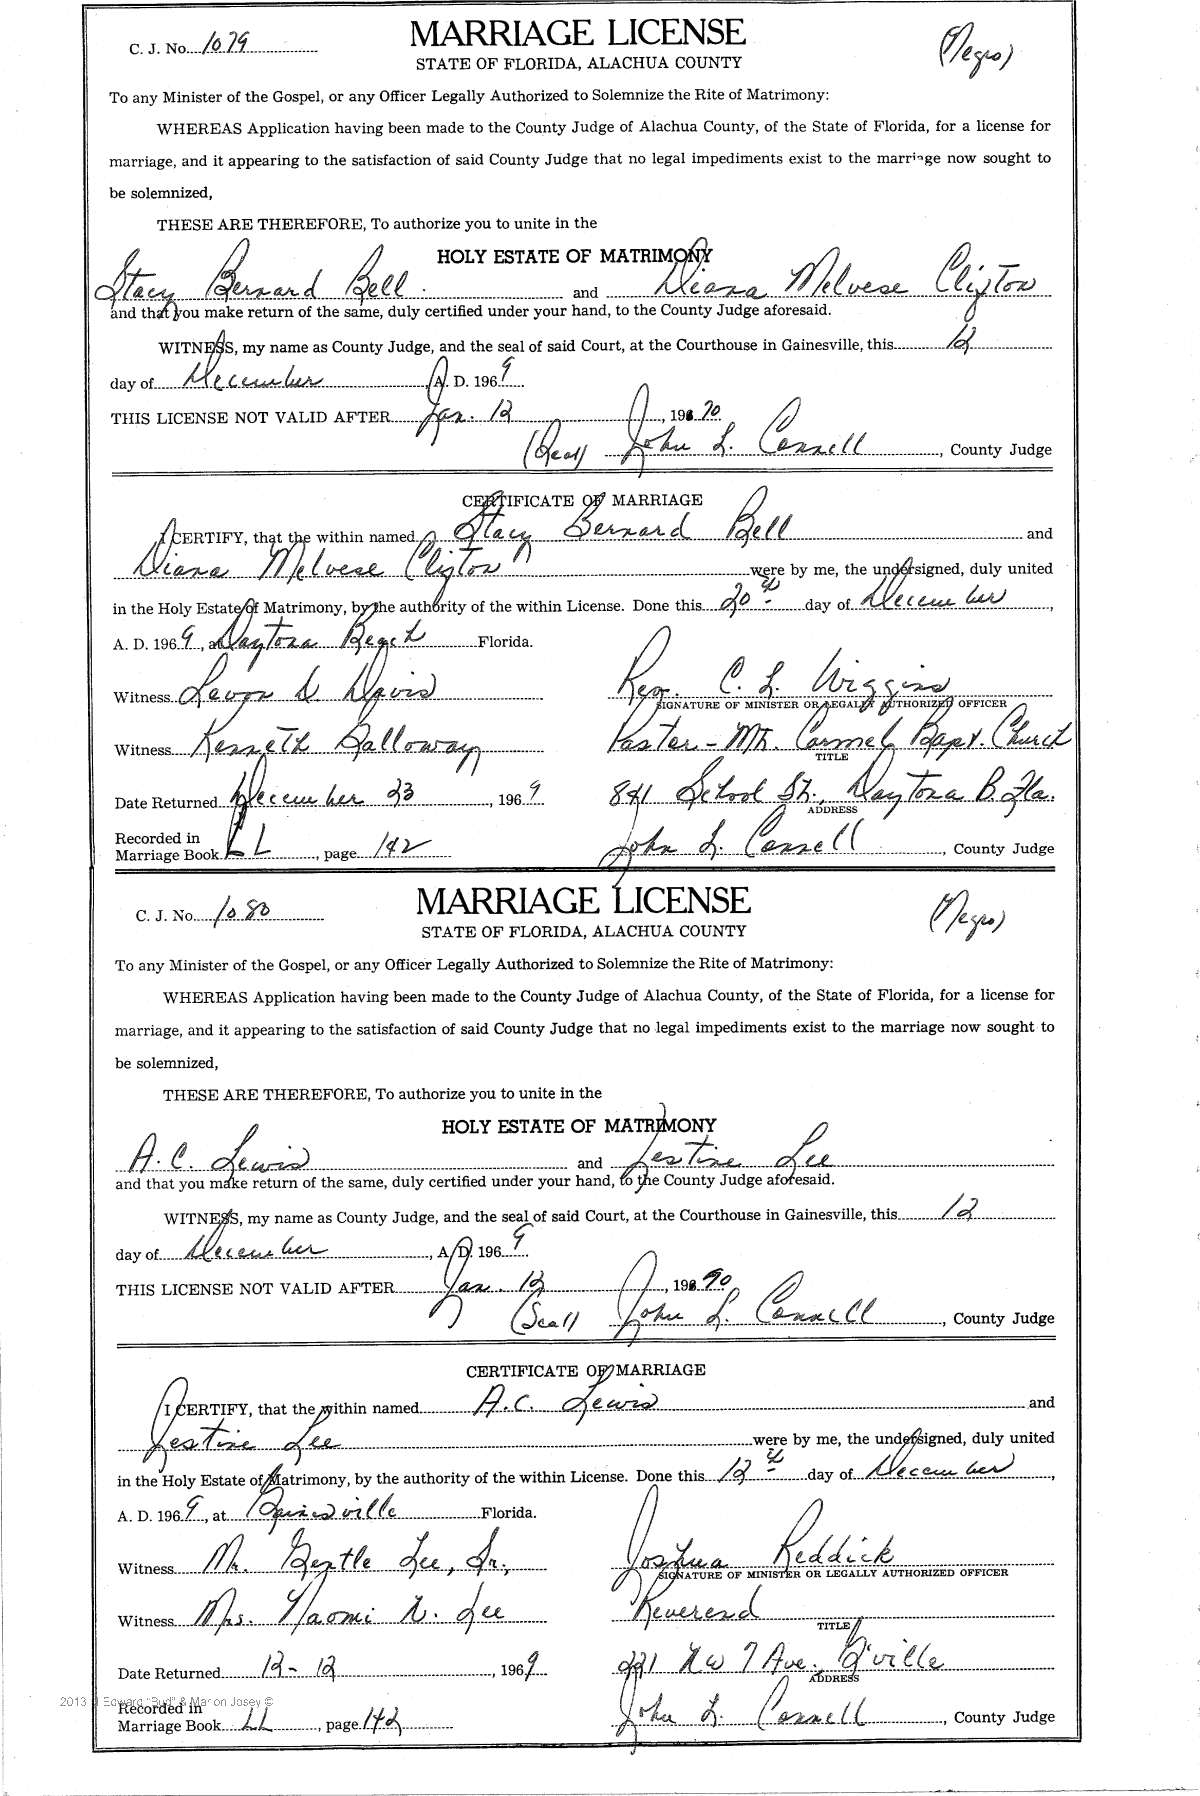 C. J. No. 1079
MARRIAGE LICENSE
(Negro)
STATE OF FLORIDA, ALACHUA COUNTY
To any Minister of the Gospel, or any Officer Legally Authorized to Solemnize the Rite of Matrimony:
WHEREAS Application having been made to the County Judge of Alachua County, of the State of Florida, for a license for
marriage, and it appearing to the satisfaction of said County Judge that no legal impediments exist to the marriage now sought to
be solemnized,
THESE ARE THEREFORE, To authorize you to unite in the
HOLY ESTATE OF MATRIMONY
Stacy Bernard Bell and Diana Melvese Clifton
and that you make return of the same, duly certified under your hand, to the County Judge aforesaid.
WITNESS, my name as County Judge, and the seal of said Court, at the Courthouse in Gainesville, this 12
day of December A. D. 1969
THIS LICENSE NOT VALID AFTER Jan. 12, 1970
(Seal) John L. Connell, County Judge
CERTIFICATE OF MARRIAGE
I CERTIFY, that the within named Stacy Bernard Bell and
Diana Melvese Clifton were by me, the undersigned, duly united
in the Holy Estate of Matrimony, by the authority of the within License. Done this 20th day of December,
A. D. 1969, at Daytona Beach Florida.
Witness Levon D Davis Rev. C. L. Wiggins
SIGNATURE OF MINISTER OR LEGALLY AUTHORIZED OFFICER
Witness Kenneth Galloway Pastor - Mt. Carmel Bapt. Church
TITLE
Date Returned December 23, 1969 841 School St., Daytona B. Fla.
ADDRESS
Recorded in
Marriage Book LL, page 142 John L. Connell, County Judge
C. J. No. 1080
MARRIAGE LICENSE
(Negro)
STATE OF FLORIDA, ALACHUA COUNTY
To any Minister of the Gospel, or any Officer Legally Authorized to Solemnize the Rite of Matrimony:
WHEREAS Application having been made to the County Judge of Alachua County, of the State of Florida, for a license for
marriage, and it appearing to the satisfaction of said County Judge that no legal impediments exist to the marriage now sought to
be solemnized,
THESE ARE THEREFORE, To authorize you to unite in the
HOLY ESTATE OF MATRIMONY
A. C. Lewis and Jestine Lee
and that you make return of the same, duly certified under your hand, to the County Judge aforesaid.
WITNESS, my name as County Judge, and the seal of said Court, at the Courthouse in Gainesville, this 12
day of December, A. D. 1969
THIS LICENSE NOT VALID AFTER Jan. 12, 1970
(Seal) John L. Connell, County Judge
CERTIFICATE OF MARRIAGE
I CERTIFY, that the within named A.C. Lewis and
Jestine Lee were by me, the undersigned, duly united
in the Holy Estate of Matrimony, by the authority of the within License. Done this 12th day of December,
A. D. 1969, at Gainesville Florida.
Witness Mr. Gertle Lee, Sr. Joshua Reddick
SIGNATURE OF MINISTER OR LEGALLY AUTHORIZED OFFICER
Witness Mrs. Naomi N. Lee Reverend
TITLE
Date Returned 12-12, 1969 221 NW 7 Ave. G'ville
ADDRESS
2013 J Edward "Bud" & Marion Josey ©
Recorded in
Marriage Book LL, page 142 John L. Connell, County Judge